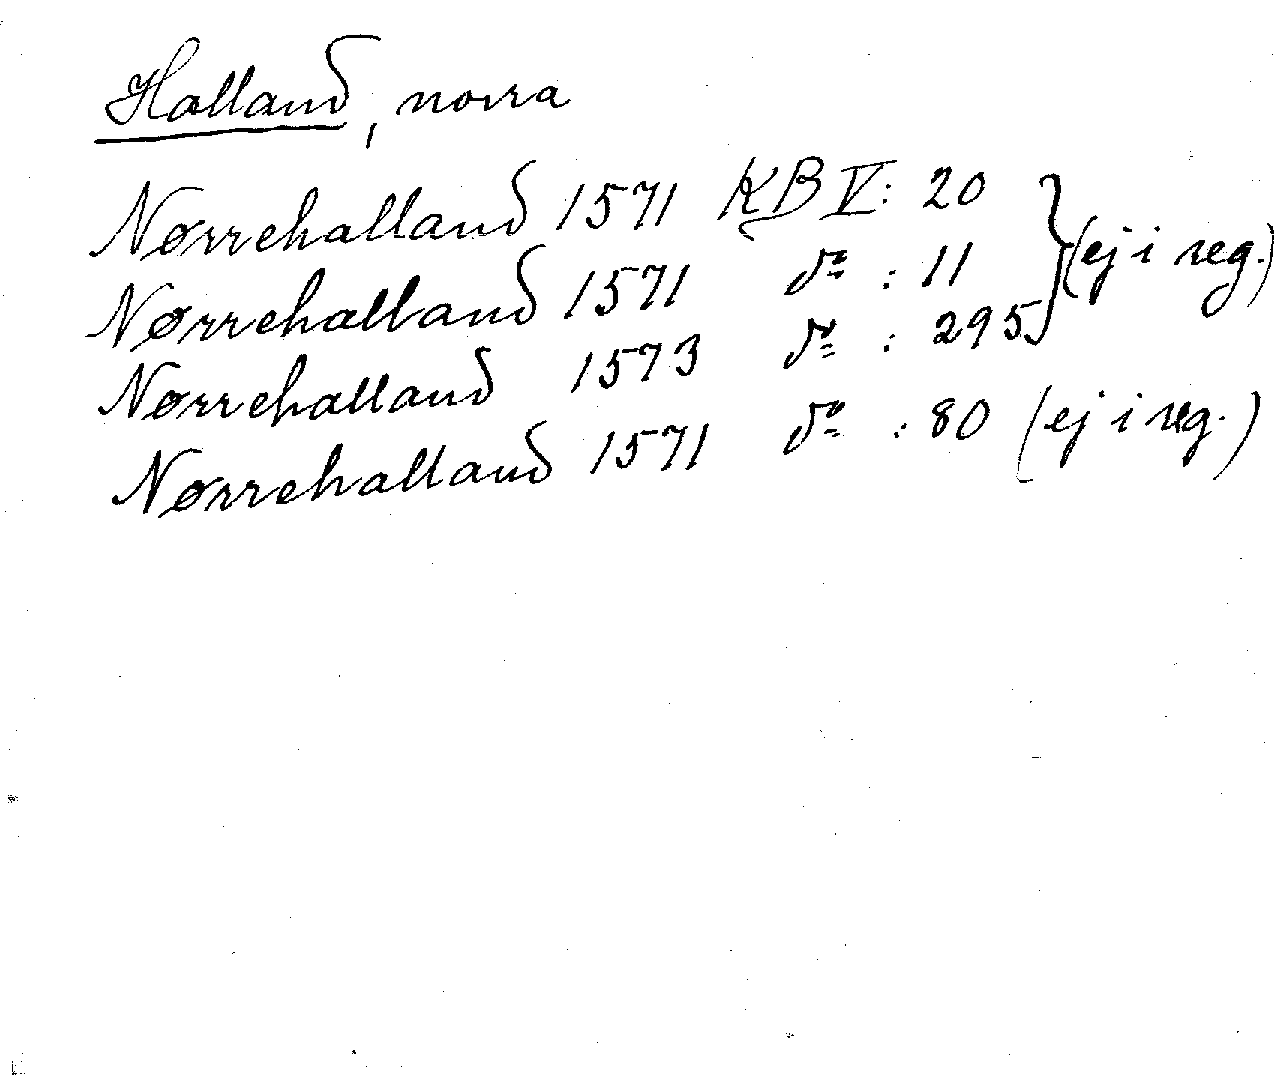 Halland, norra
Nørrehalland 1571 KB V: 20
Nørrehalland 1571 dº : 11 } (ej i reg.)
Nørrehalland 1573 dº : 295
Nørrehalland 1571 dº : 80 (ej i reg.)